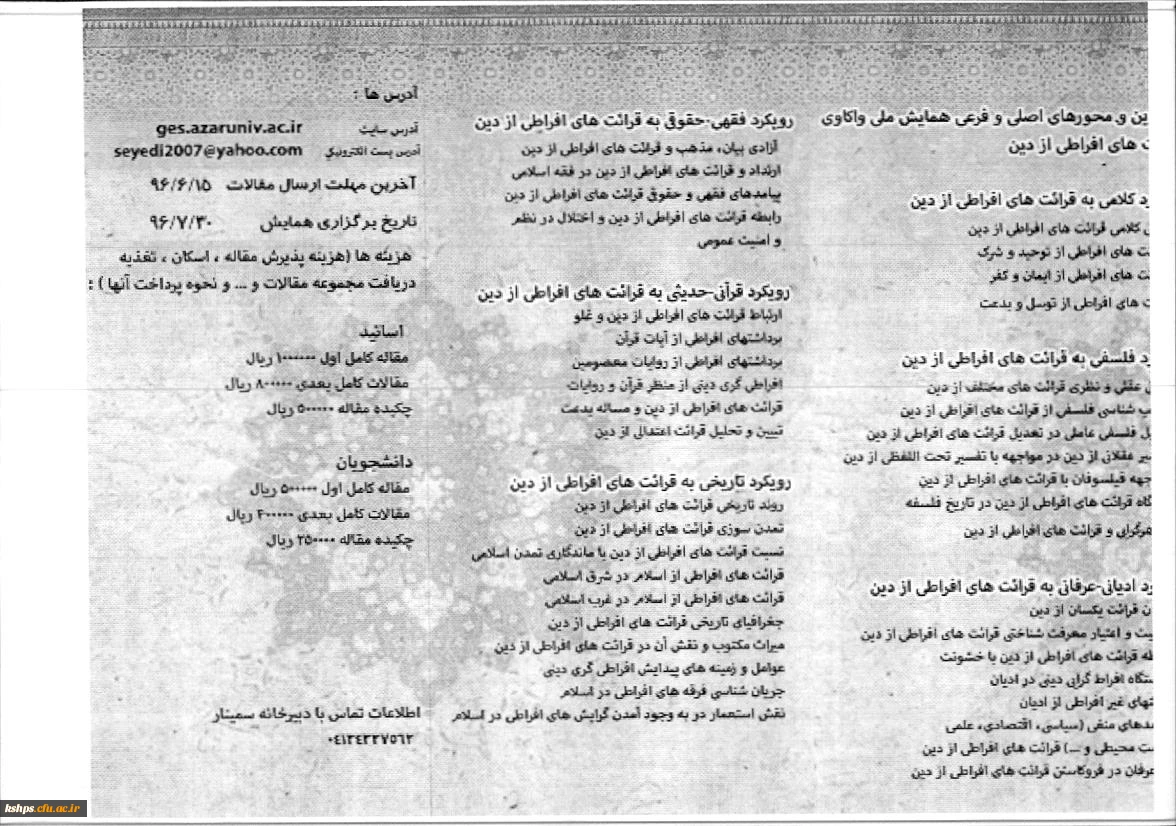 ین و محورهای اصلی و فرعی همایش ملی واکاوی
ت های افراطی از دین
رد کلامی به قرائت های افراطی از دین
ی کلامی قرائت های افراطی از دین
ت های افراطی از توحید و شرک
ت های افراطی از ایمان و کفر
ت های افراطی از توسل و بدعت
رد فلسفی به قرائت های افراطی از دین
ی عقلی و نظری قرائت های مختلف از دین
ب شناسی فلسفی از قرائت های افراطی از دین
یل فلسفی عاملی در تعدیل قرائت های افراطی از دین
یر عقلانی از دین در مواجهه با تفسیر تحت اللفظی از دین
جهه فیلسوفان با قرائت های افراطی از دین
گاه قرائت های افراطی از دین در تاریخ فلسفه
هرگرایی و قرائت های افراطی از دین
رد ادیانی-عرفانی به قرائت های افراطی از دین
ن قرائت یکسان از دین
یت و اعتبار معرفت شناختی قرائت های افراطی از دین
طه قرائت های افراطی از دین با خشونت
ستگاه افراط گرایی دینی در ادیان
تهای غیر افراطی از ادیان
مدهای منفی (سیاسی، اقتصادی، علمی
ست محیطی و ...) قرائت های افراطی از دین
عرفان در فروکاستن قرائت های افراطی از دین
رویکرد فقهی-حقوقی به قرائت های افراطی از دین
آزادی بیان، مذهب و قرائت های افراطی از دین
ارتداد و قرائت های افراطی از دین در فقه اسلامی
پیامدهای فقهی و حقوقی قرائت های افراطی از دین
رابطه قرائت های افراطی از دین و اختلال در نظم
و امنیت عمومی
رویکرد قرآنی-حدیثی به قرائت های افراطی از دین
ارتباط قرائت های افراطی از دین و غلو
برداشتهای افراطی از آیات قرآن
برداشتهای افراطی از روایات معصومین
افراطی گری دینی از منظر قرآن و روایات
قرائت های افراطی از دین و مساله بدعت
تبیین و تحلیل قرائت اعتدالی از دین
رویکرد تاریخی به قرائت های افراطی از دین
روند تاریخی قرائت های افراطی از دین
تمدن سوزی قرائت های افراطی از دین
نسبت قرائت های افراطی از دین با ماندگاری تمدن اسلامی
قرائت های افراطی از اسلام در شرق اسلامی
قرائت های افراطی از اسلام در غرب اسلامی
جغرافیای تاریخی قرائت های افراطی از دین
میراث مکتوب و نقش آن در قرائت های افراطی از دین
عوامل و زمینه های پیدایش افراطی گری دینی
جریان شناسی فرقه های افراطی در اسلام
نقش استعمار در به وجود آمدن گرایش های افراطی در اسلام
آدرس ها :
آدرس سایت ges.azaruniv.ac.ir
آدرس پست الکترونیکی seyedi2007@yahoo.com
آخرین مهلت ارسال مقالات ۹۶/۶/۱۵
تاریخ برگزاری همایش ۹۶/۷/۳۰
هزینه ها (هزینه پذیرش مقاله ، اسکان ، تغذیه
دریافت مجموعه مقالات و ... و نحوه پرداخت آنها ) :
اساتید
مقاله کامل اول ۱۰۰۰۰۰۰ ریال
مقالات کامل بعدی ۸۰۰۰۰۰ ریال
چکیده مقاله ۵۰۰۰۰۰ ریال
دانشجویان
مقاله کامل اول ۵۰۰۰۰۰ ریال
مقالات کامل بعدی ۴۰۰۰۰۰ ریال
چکیده مقاله ۲۵۰۰۰۰ ریال
اطلاعات تماس با دبیرخانه سمینار
۰۴۱۳۴۳۲۷۵۶۲
kshps.cfu.ac.ir